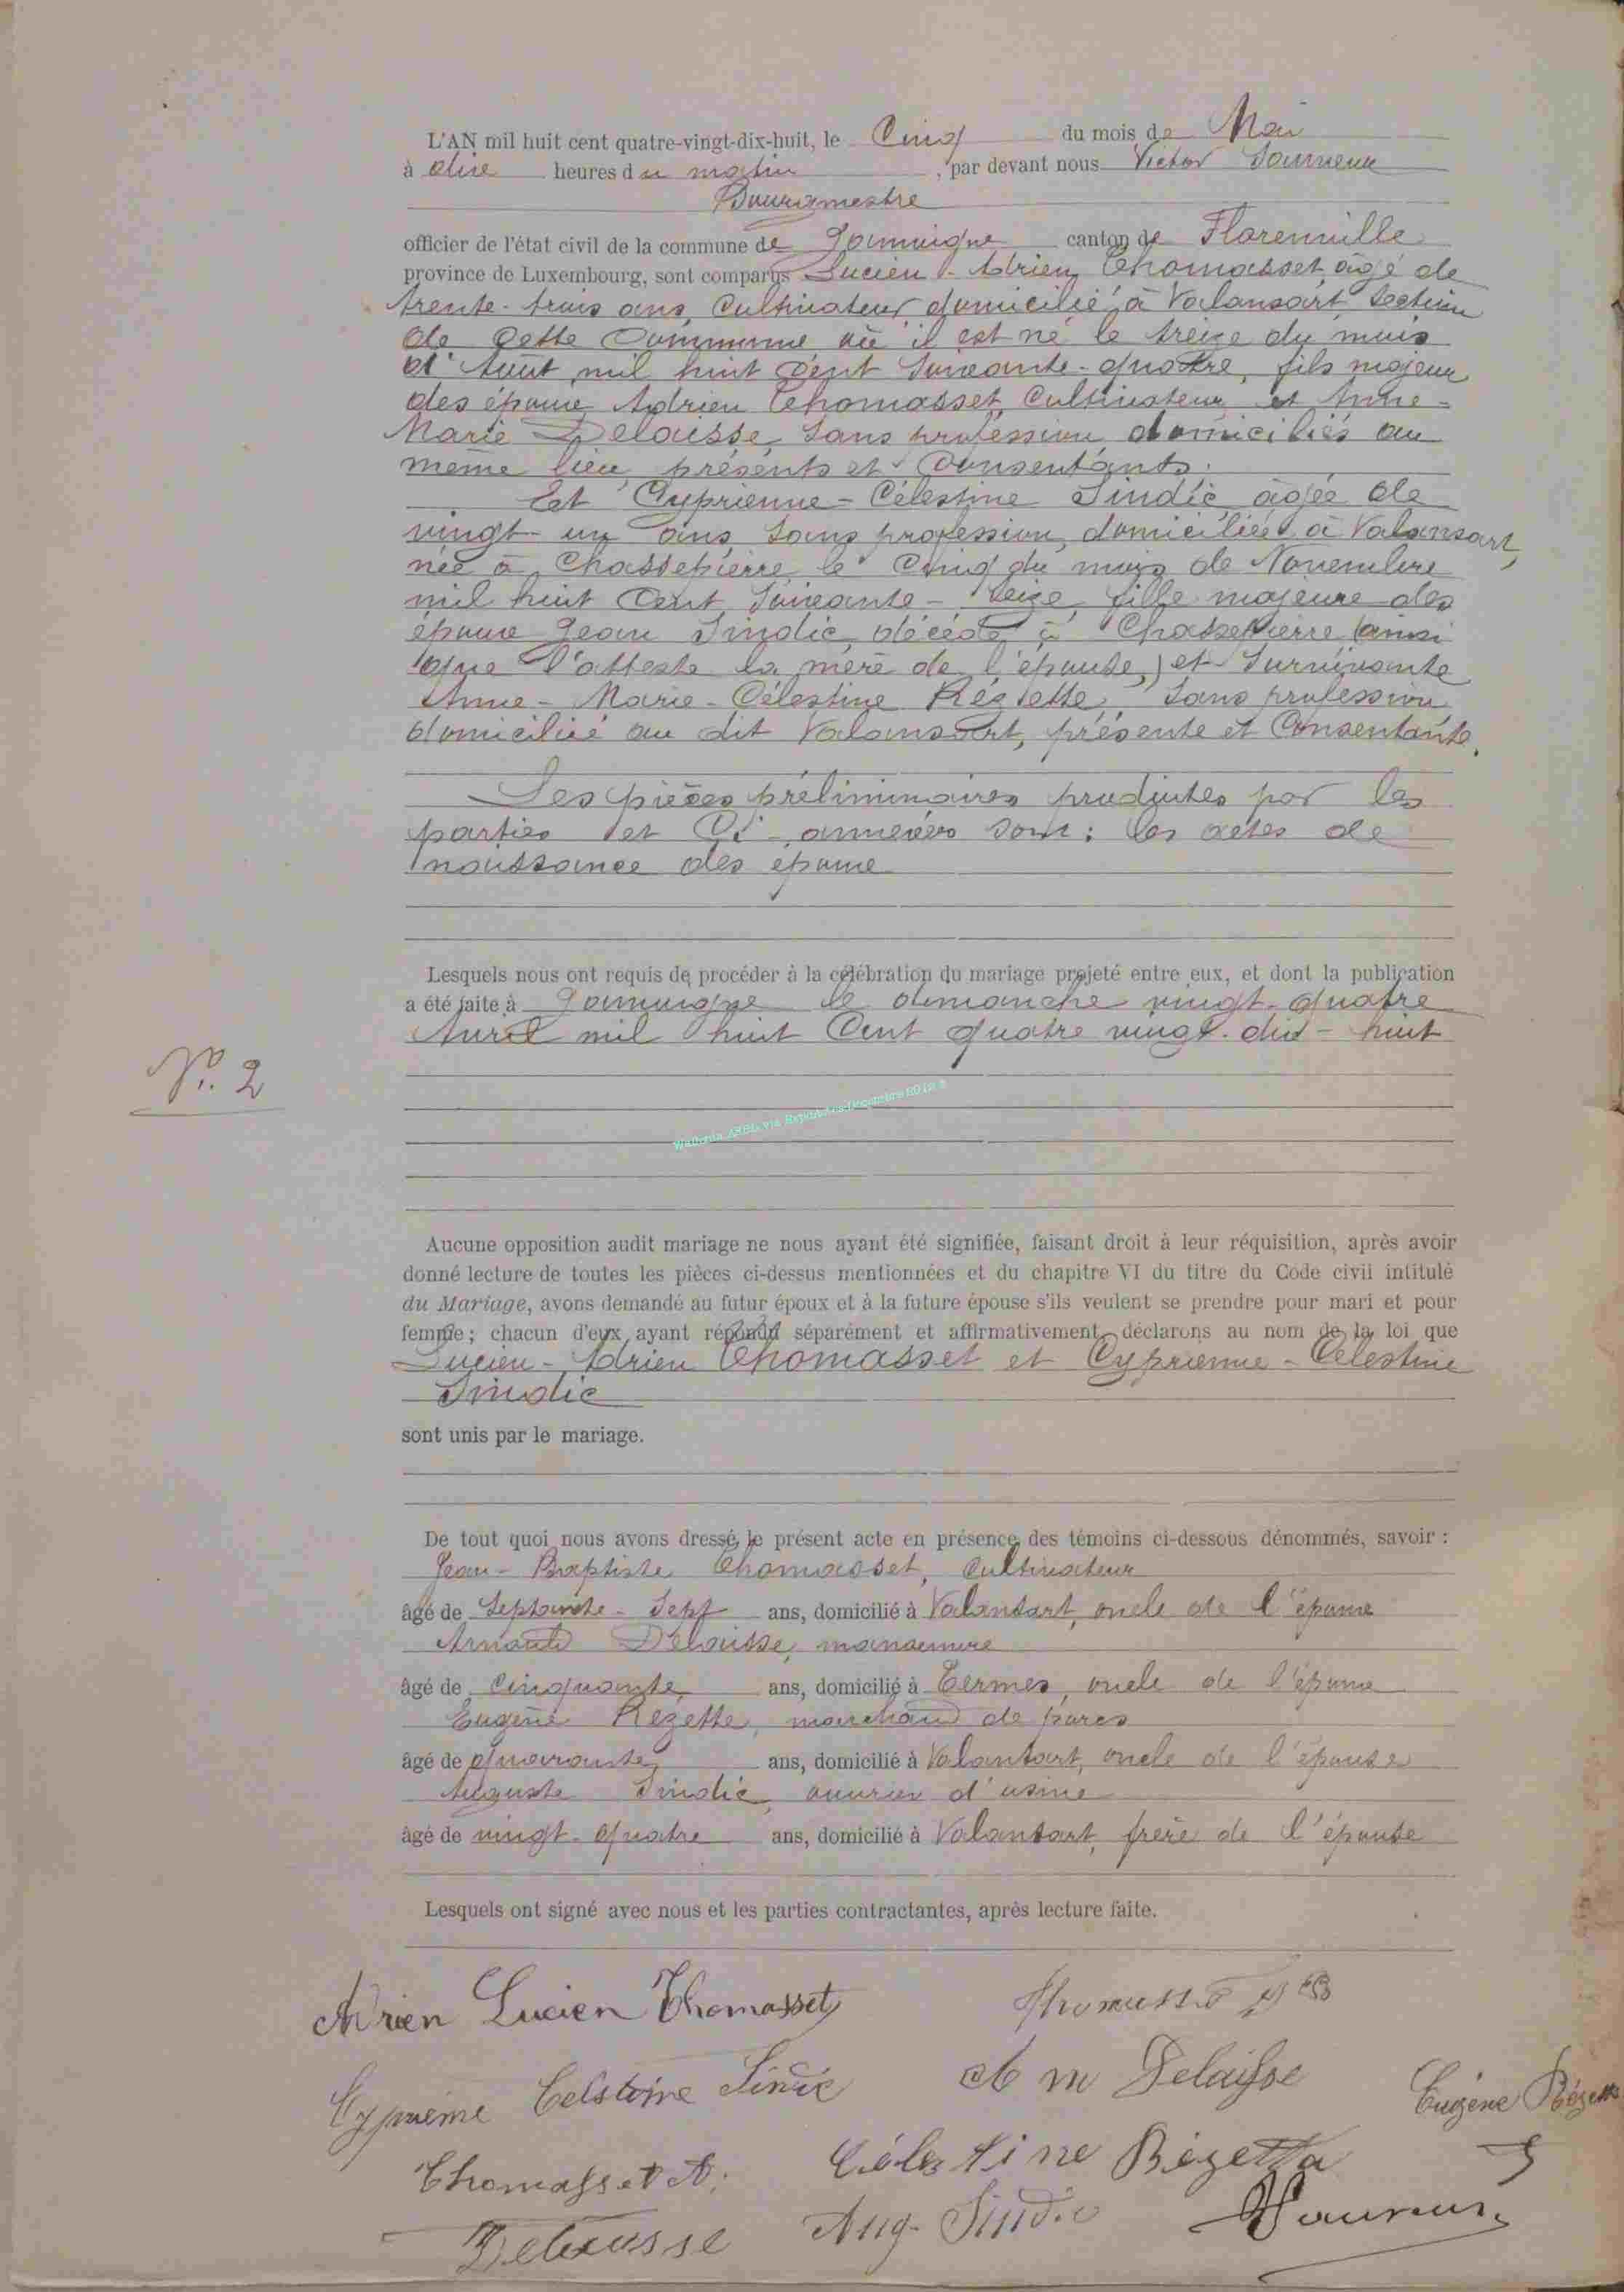 L'AN mil huit cent quatre-vingt-dix-huit, le Cinq du mois de Mai
à dix heures du matin, par devant nous Victor
Bourgmestre
officier de l'état civil de la commune de Jamoigne canton de Florenville
province de Luxembourg, sont comparus Lucien - Adrien Thomasset, âgé de
trente-trois ans, Cultivateur, domicilié à Valansart section
de Cette Commune où il est né le treize du mois
d'Août mil huit Cent Soixante-quatre, fils majeur
des époux Adrien Thomasset, Cultivateur et Anne-
Marie Delaisse, Sans profession domiciliés au
même lieu, présents et Consentants.
Et Cyprienne - Célestine Sindic, âgée de
vingt-un ans, Sans profession, domiciliée à Valansart,
née à Chassepierre le Cinq du mois de Novembre
mil huit Cent Soixante-Seize, fille majeure des
époux Jean Sindic, décédé à Chassepierre (ainsi
que l'atteste la mère de l'épouse,) et Survivante
Anne - Marie - Célestine Rézette, Sans profession
domicilié au dit Valansart, présente et Consentante.
Les pièces préliminaires produites par les
parties et Ci-annexées sont : les actes de
naissance des époux
Lesquels nous ont requis de procéder à la célébration du mariage projeté entre eux, et dont la publication
a été faite à Jamoigne le dimanche vingt-quatre
Avril mil huit Cent quatre vingt-dix-huit
N°. 2
Aucune opposition audit mariage ne nous ayant été signifiée, faisant droit à leur réquisition, après avoir
donné lecture de toutes les pièces ci-dessus mentionnées et du chapitre VI du titre du Code civil intitulé
du Mariage, avons demandé au futur époux et à la future épouse s'ils veulent se prendre pour mari et pour
femme ; chacun d'eux ayant répondu séparément et affirmativement, déclarons au nom de la loi que
Lucien - Adrien Thomasset et Cyprienne - Célestine
Sindic
sont unis par le mariage.
De tout quoi nous avons dressé le présent acte en présence des témoins ci-dessous dénommés, savoir :
Jean - Baptiste Thomasset, Cultivateur
âgé de Septante-Sept ans, domicilié à Valansart, oncle de l'époux
Arnould Delaisse, manœuvre
âgé de Cinquante ans, domicilié à Termes, oncle de l'époux
Eugène Rézette, marchand de porcs
âgé de quarante ans, domicilié à Valansart, oncle de l'épouse
Auguste Sindic, ouvrier d'usine
âgé de vingt-quatre ans, domicilié à Valansart, frère de l'épouse
Lesquels ont signé avec nous et les parties contractantes, après lecture faite.
Adrien Lucien Thomasset
Cyprième Celstine Sindic
A m Delaisse
Eugène Rézette
Thomasset A.
Célestine Rézette
Delaisse
Aug. Sindic